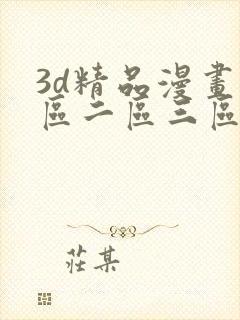 3d精品漫畫
區二區三區
莊某